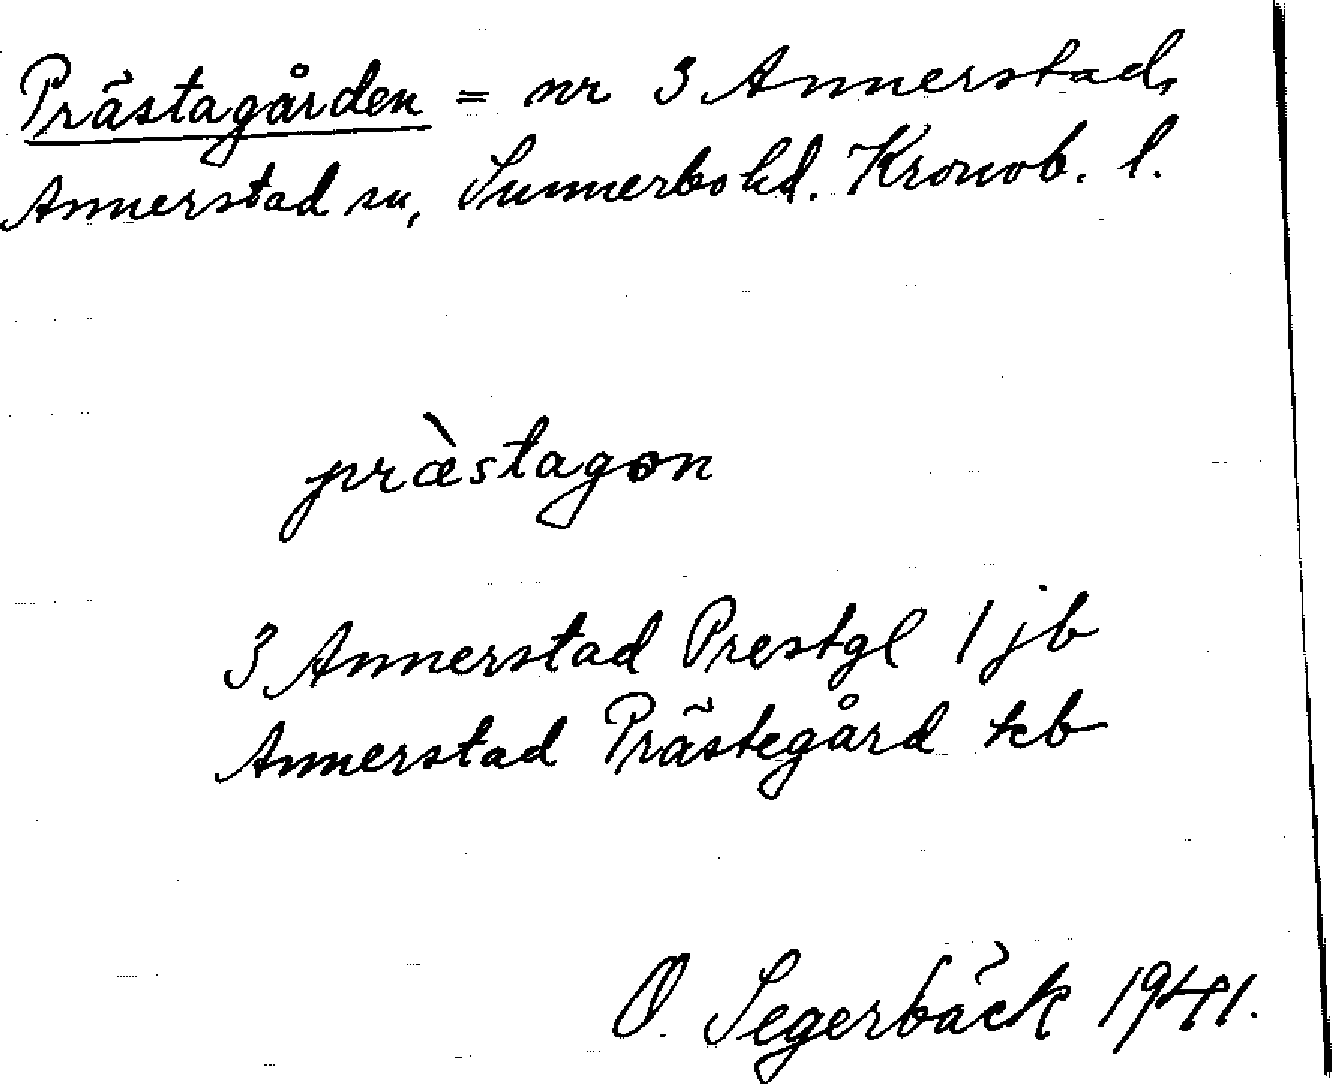 Prästagården = nr 3 Annerstad,
Annerstad sn, Sunnerbo hd. Kronob. l.
præ̀stagon
3 Annerstad Prestgl 1 jb
Annerstad Prästegård kb
O. Segerbäck 1941.